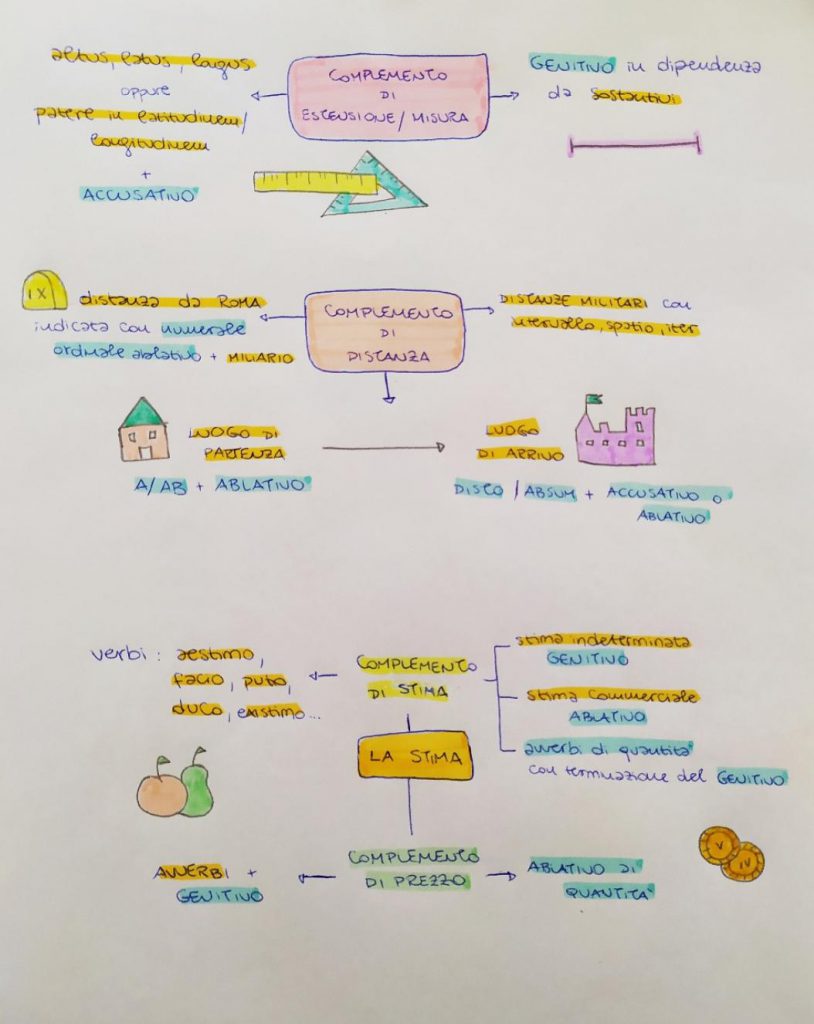 altus, latus, longus
oppure
patere in latitudinem/
longitudinem
+
ACCUSATIVO
COMPLEMENTO
DI
ESTENSIONE/MISURA
GENITIVO in dipendenza
da sostantivi
IX
distanza da ROMA
indicata con numerale
ordinale ablativo + MILIARIO
COMPLEMENTO
DI
DISTANZA
DISTANZE MILITARI con
intervallo, spatio, iter
LUOGO DI
PARTENZA
A/AB + ABLATIVO
LUOGO
DI ARRIVO
DISTO / ABSUM + ACCUSATIVO O
ABLATIVO
verbi: aestimo,
facio, puto,
duco, existimo...
COMPLEMENTO
DI STIMA
stima indeterminata
GENITIVO
stima commerciale
ABLATIVO
avverbi di quantità
con terminazione del GENITIVO
LA STIMA
AVVERBI +
GENITIVO
COMPLEMENTO
DI PREZZO
ABLATIVO DI
QUANTITÀ
V
IV